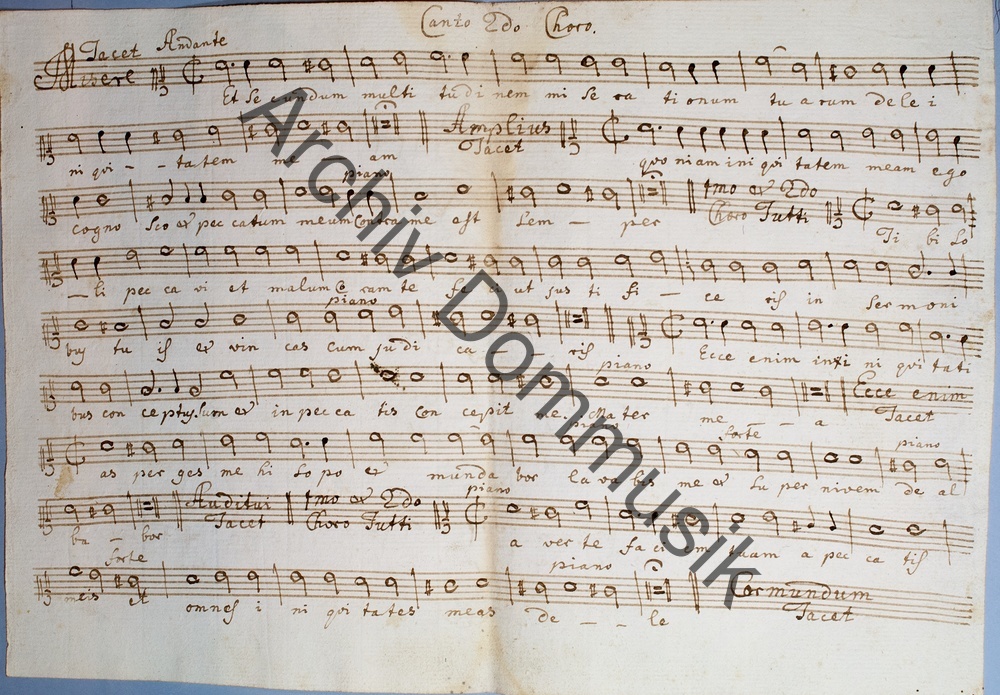 Canto 2do Choro.
Miserere Tacet Andante
Et Se cundum multi tu di nem mi se ra ti onum tu a rum de le i
ni qvi - - tatem me am Amplius Tacet qvo niam ini qvi tatem meam ego
piano
cogno sco et pec catum meum Contra me est Sem - per 1mo et 2do Choro Tutti Ti bi so
- li pec ca vi et malum Co ram te fe ci ut jus ti fi - ce ris in ser moni
piano
bus tu is et vin cas cum ju di ca - - ris Ecce enim in ini qvi tati
piano
bus con ceptus Sum et in pec ca tis con cepit me. Ma ter me - a Ecce enim Tacet
piano forte piano
as per ges me hi so po et munda bor la va bis me et su per nivem de al
piano
ba - bor Auditui Tacet 1mo et 2do Choro Tutti a ver te fa ci em tuam a pec ca tis
forte piano
meis et omnes i ni qvi tates meas de - - le Cor mundum Tacet
Archiv Dommusik